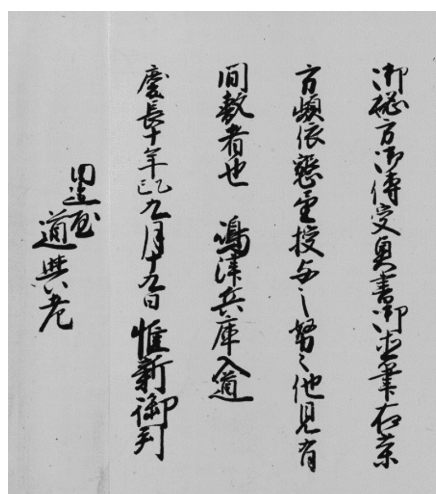 御秘方御傳受奥書御直筆右薬
方頻依懇望授与之努々他見有
間敷者也　嶋津兵庫入道
慶長十年乙巳九月十九日　惟新御判
田邊屋
道與老